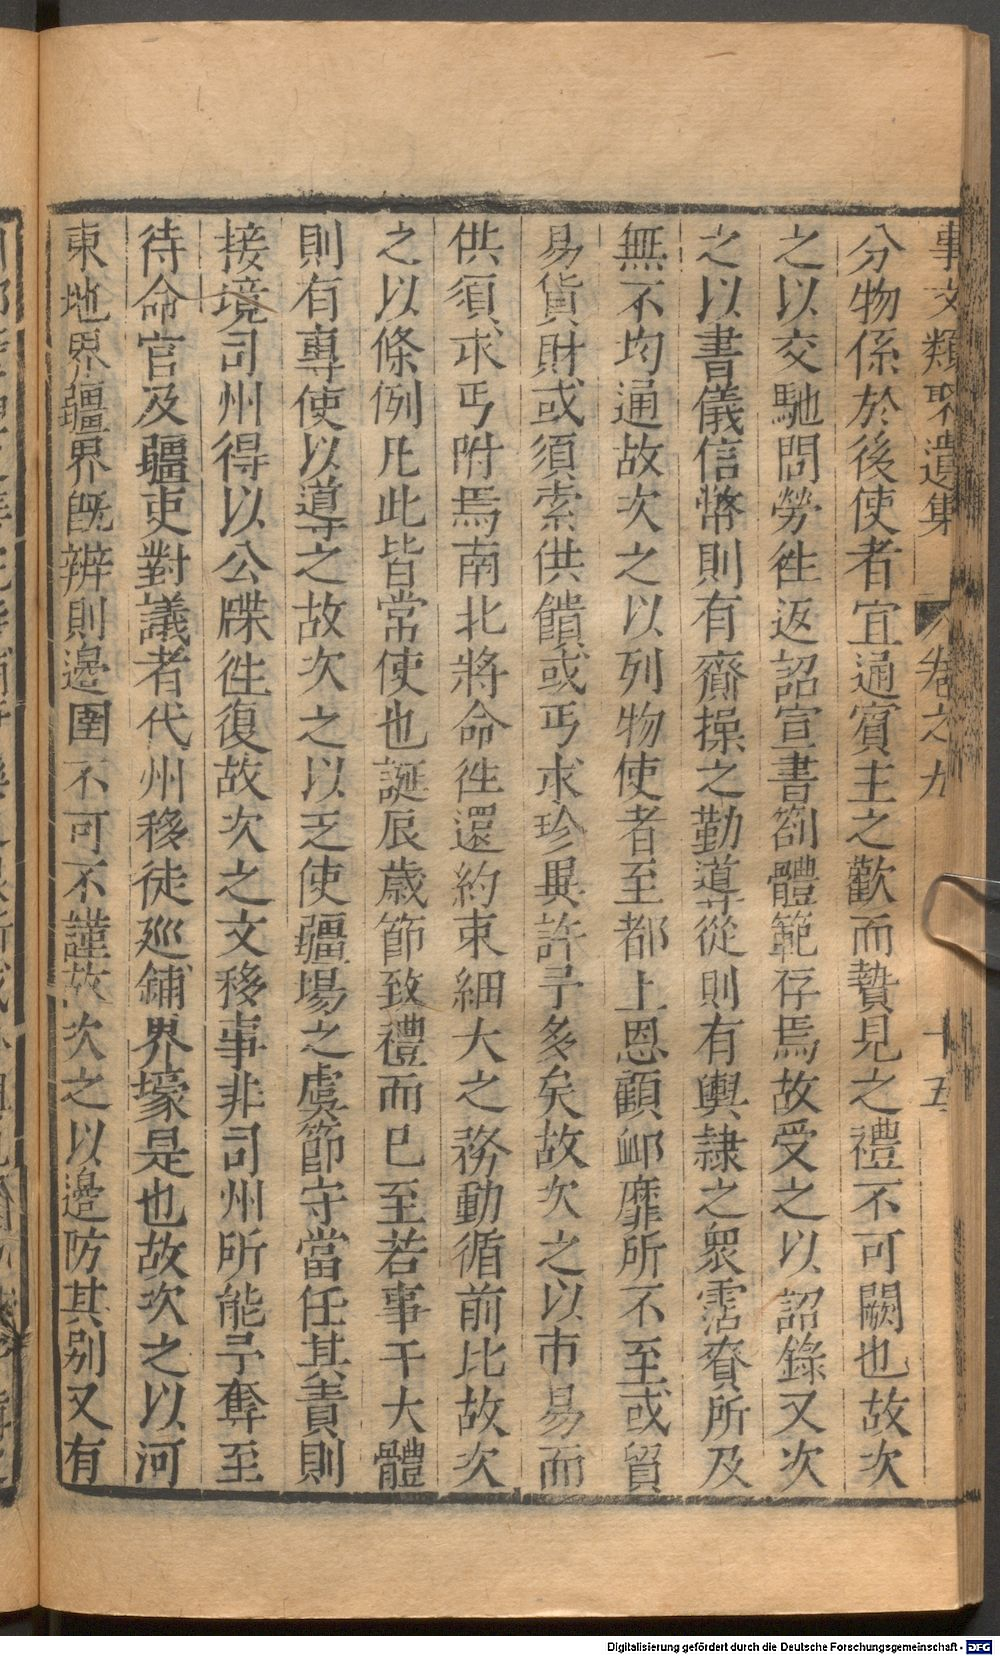 事文類聚遺集 卷之九 十五
分物係於後使者宜通賓主之歡而贄見之禮不可闕也故次
之以交馳問勞徃返詔宣書劄體範存焉故受之以詔錄又次
之以書儀信幣則有齎操之勤導從則有輿隷之衆霑賚所及
無不均通故次之以列物使者至都上恩顧卹靡所不至或貿
易貨財或須索供饋或丐求珍異許予多矣故次之以市易而
供須求丐附焉南北將命徃還約束細大之務動循前比故次
之以條例凡此皆常使也誕辰歲節致禮而已至若事干大體
則有專使以導之故次之以乏使疆場之虞節守當任其責則
接境司州得以公牒徃復故次之文移事非司州所能予奪至
待命官及疆吏對議者代州移徒巡鋪界壕是也故次之以河
東地界疆界旣辨則邊圉不可不謹故次之以邊防其别又有
Digitalisierung gefördert durch die Deutsche Forschungsgemeinschaft - DFG